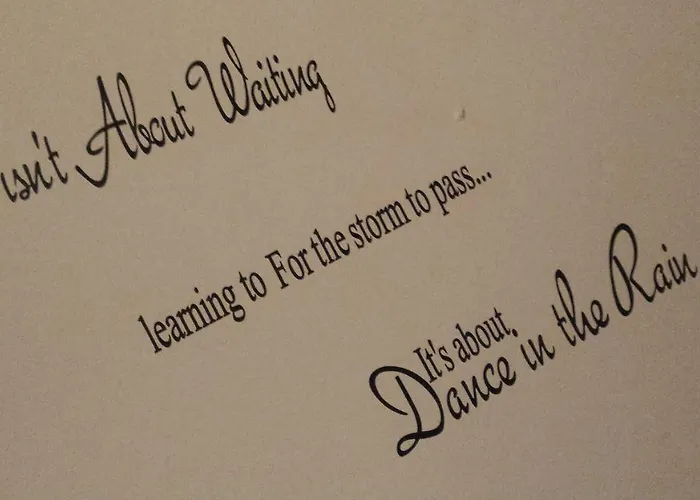 isn't About Waiting
learning to For the storm to pass...
It's about
Dance in the Rain